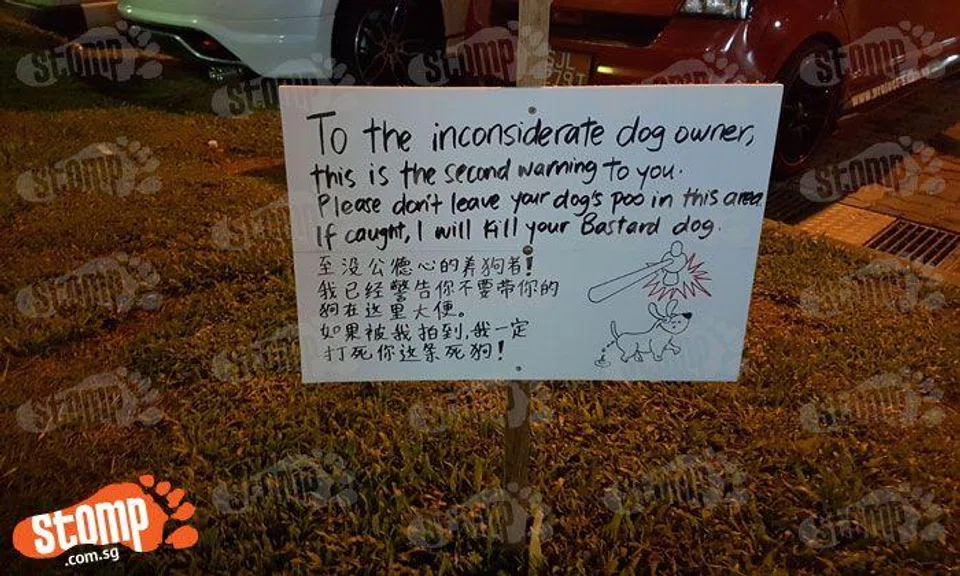 To the inconsiderate dog owner,
this is the second warning to you.
Please don't leave your dog's poo in this area.
If caught, I will kill your Bastard dog.
至没公德心的养狗者!
我已经警告你不要带你的
狗在这里大便。
如果被我拍到,我一定
打死你这条死狗!
stomp
.com.sg